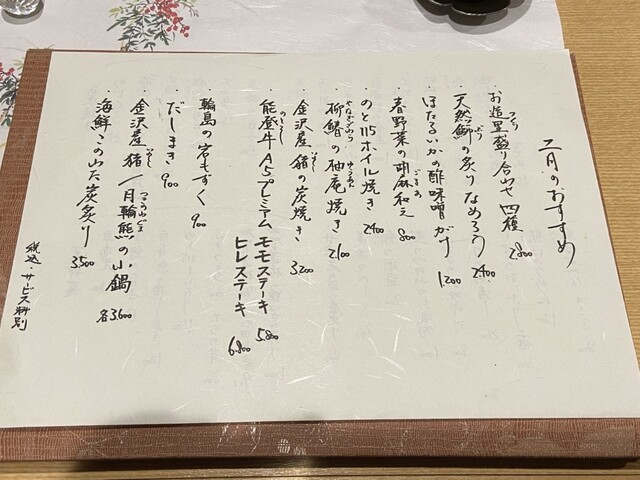 二月のおすすめ
・お造里盛り合わせ 四種 2800
・天然鰤の炙りなめろう 2400
・ほたるいかの酢味噌がけ 1200
・春野菜の胡麻和え 800
・のと115ホイル焼き 2400
・柳鰆の柚庵焼き 2100
・金沢屋 猪の炭焼き 3200
・能登牛A5プレミアム モモステーキ 5800
ヒレステーキ 6800
・輪島の岩もずく 900
・だしまき 900
・金沢屋 猪/月輪熊の小鍋 各3600
・海鮮
3500
税込・サービス料別